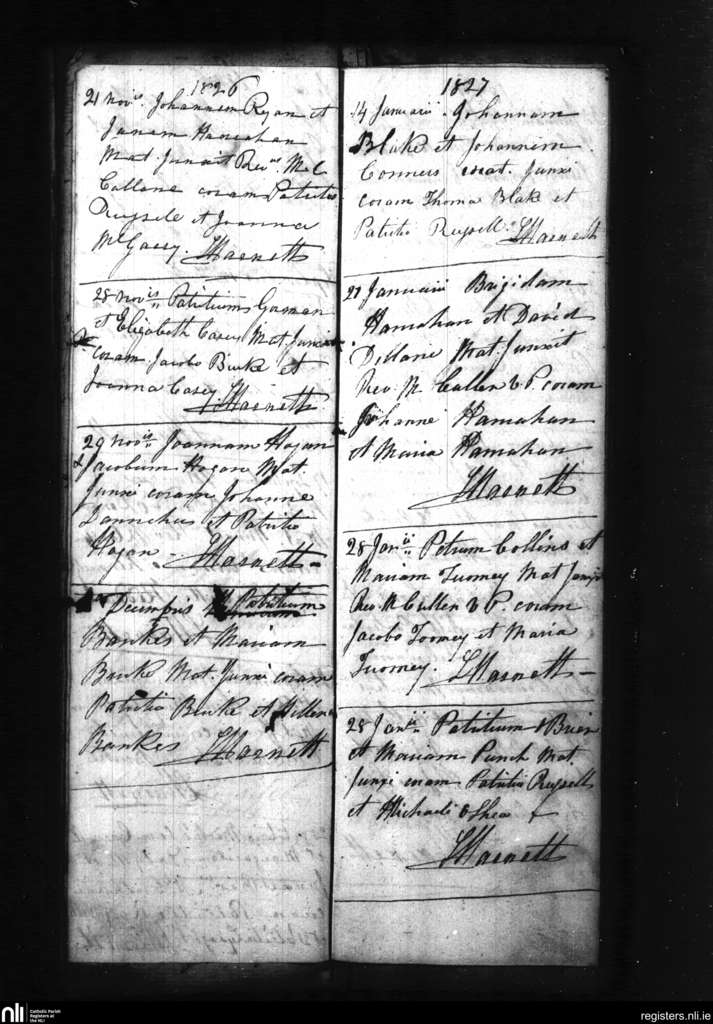 1826
21 Novr. Johannem Ryan et
Janam Hanrahan
Mat. Junxit Revds. Ml
Callane coram Patritio
Russele et Joanna
McGasey. Harnett
28 Novis Patritium Gorman
et Elizabeth Casey Mat. Junxi
coram Jacobo Burke et
Joanna Casey Harnett
29 Novis Joannam Hogan
& Jacobum Hogan Mat.
Junxi coram Johanne
et Patritio
Hogan - Harnett -
Decimbris Patritium
Bankes et Mariam
Burke Mat. Junxi coram
Patritio Burke et Hellena
Bankes Harnett
1827
14 Januarii Johannam
Blake et Johannem
Conners mat. Junxi
coram Thoma Blake et
Patritio Russell. Harnett
27 Januarii Brigidam
Hanrahan et David
Dillane Mat. Junxit
Rev. M. Cullen V. P. coram
Johanne Hanrahan
et Maria Hanrahan
Harnett
28 Janii Petrum Collins et
Mariam Tuomey Mat Junxit
Rev M Cullen V P. coram
Jacobo Toomey et Maria
Tuomey. Harnett -
28 Janii Patritium O Brien
et Mariam Punch Mat.
Junxi coram Patritio Russell
et Michaele O Shea
Harnett
nli
Catholic Parish
Registers at
the NLI
registers.nli.ie